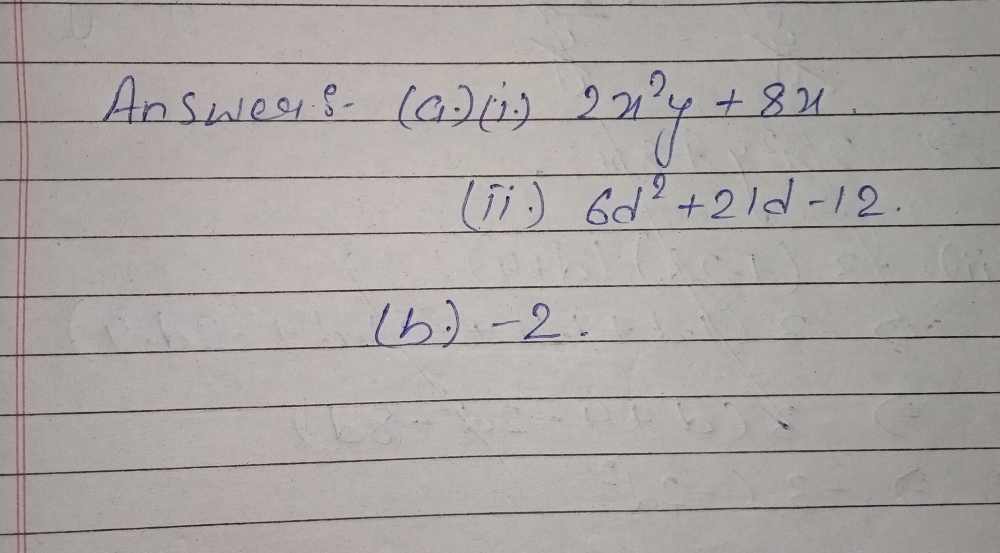 Answer:- (a.)(i.) 2x²y + 8x.
(ii.) 6d² + 21d - 12.
(b.) -2.